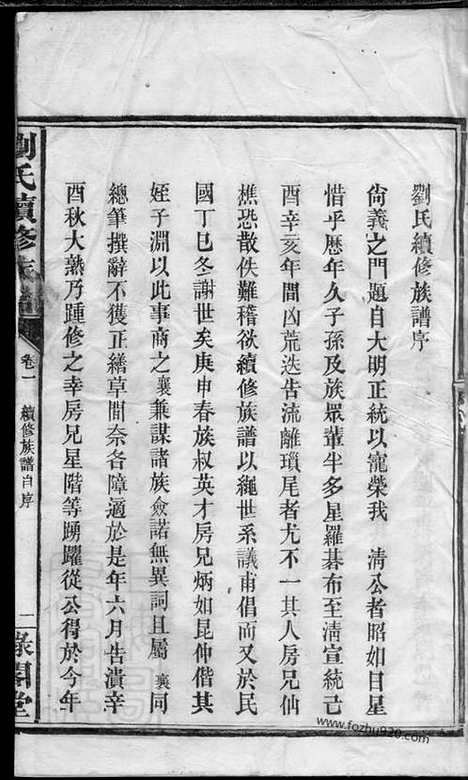 劉氏續修族譜序
尙義之門題自大明正統以寵榮我 淸公者昭如日星
惜乎歷年久子孫及族眾輩半多星羅碁布至淸宣統己
酉辛亥年間凶荒迭告流離瑣尾者尤不一其人房兄仙
樵恐散佚難稽欲續修族譜以繩世系議甫倡而又於民
國丁巳冬謝世矣庚申春族叔英才房兄炳如昆仲偕其
姪子淵以此事商之襄兼謀諸族僉諾無異詞且屬襄同
總筆撰辭不獲正繕草間奈各障適於是年六月告潰辛
酉秋大熟乃踵修之幸房兄星階等踴躍從公得於今年
劉氏續修族譜
卷一
續修族譜自序
二
祿閣堂
www.fozhu920.com